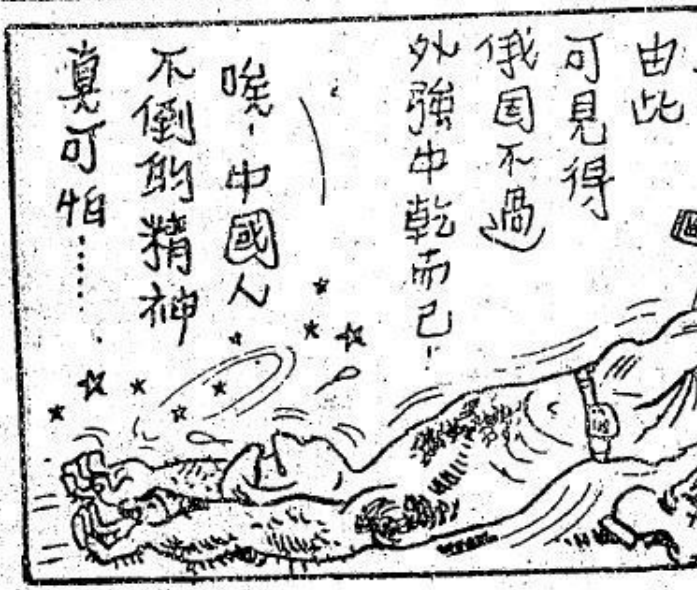 由此
可見得
俄国不過
外強中乾而已!
唉!中國人
不倒的精神
真可怕……